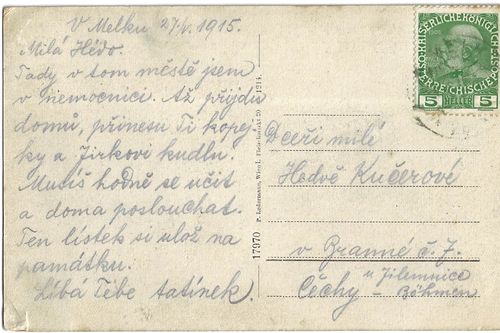 V Melku 27/V. 1915.
Milá Hédo.
Tady v tom městě jsem
v nemocnici. Až přijdu
domů, přinesu Ti kopej-
ky a Jirkovi kudlu.
Musíš hodně se učit
a doma poslouchat.
Ten lístek si ulož na
památku.
Líbá Tebe tatínek.
17970 P. Ledermann, Wien I. 1914.
5 HELLER 5
Dceři milé
Hedvě Kučerové
v Branné č. 7.
u Jilemnice
Čechy – Böhmen